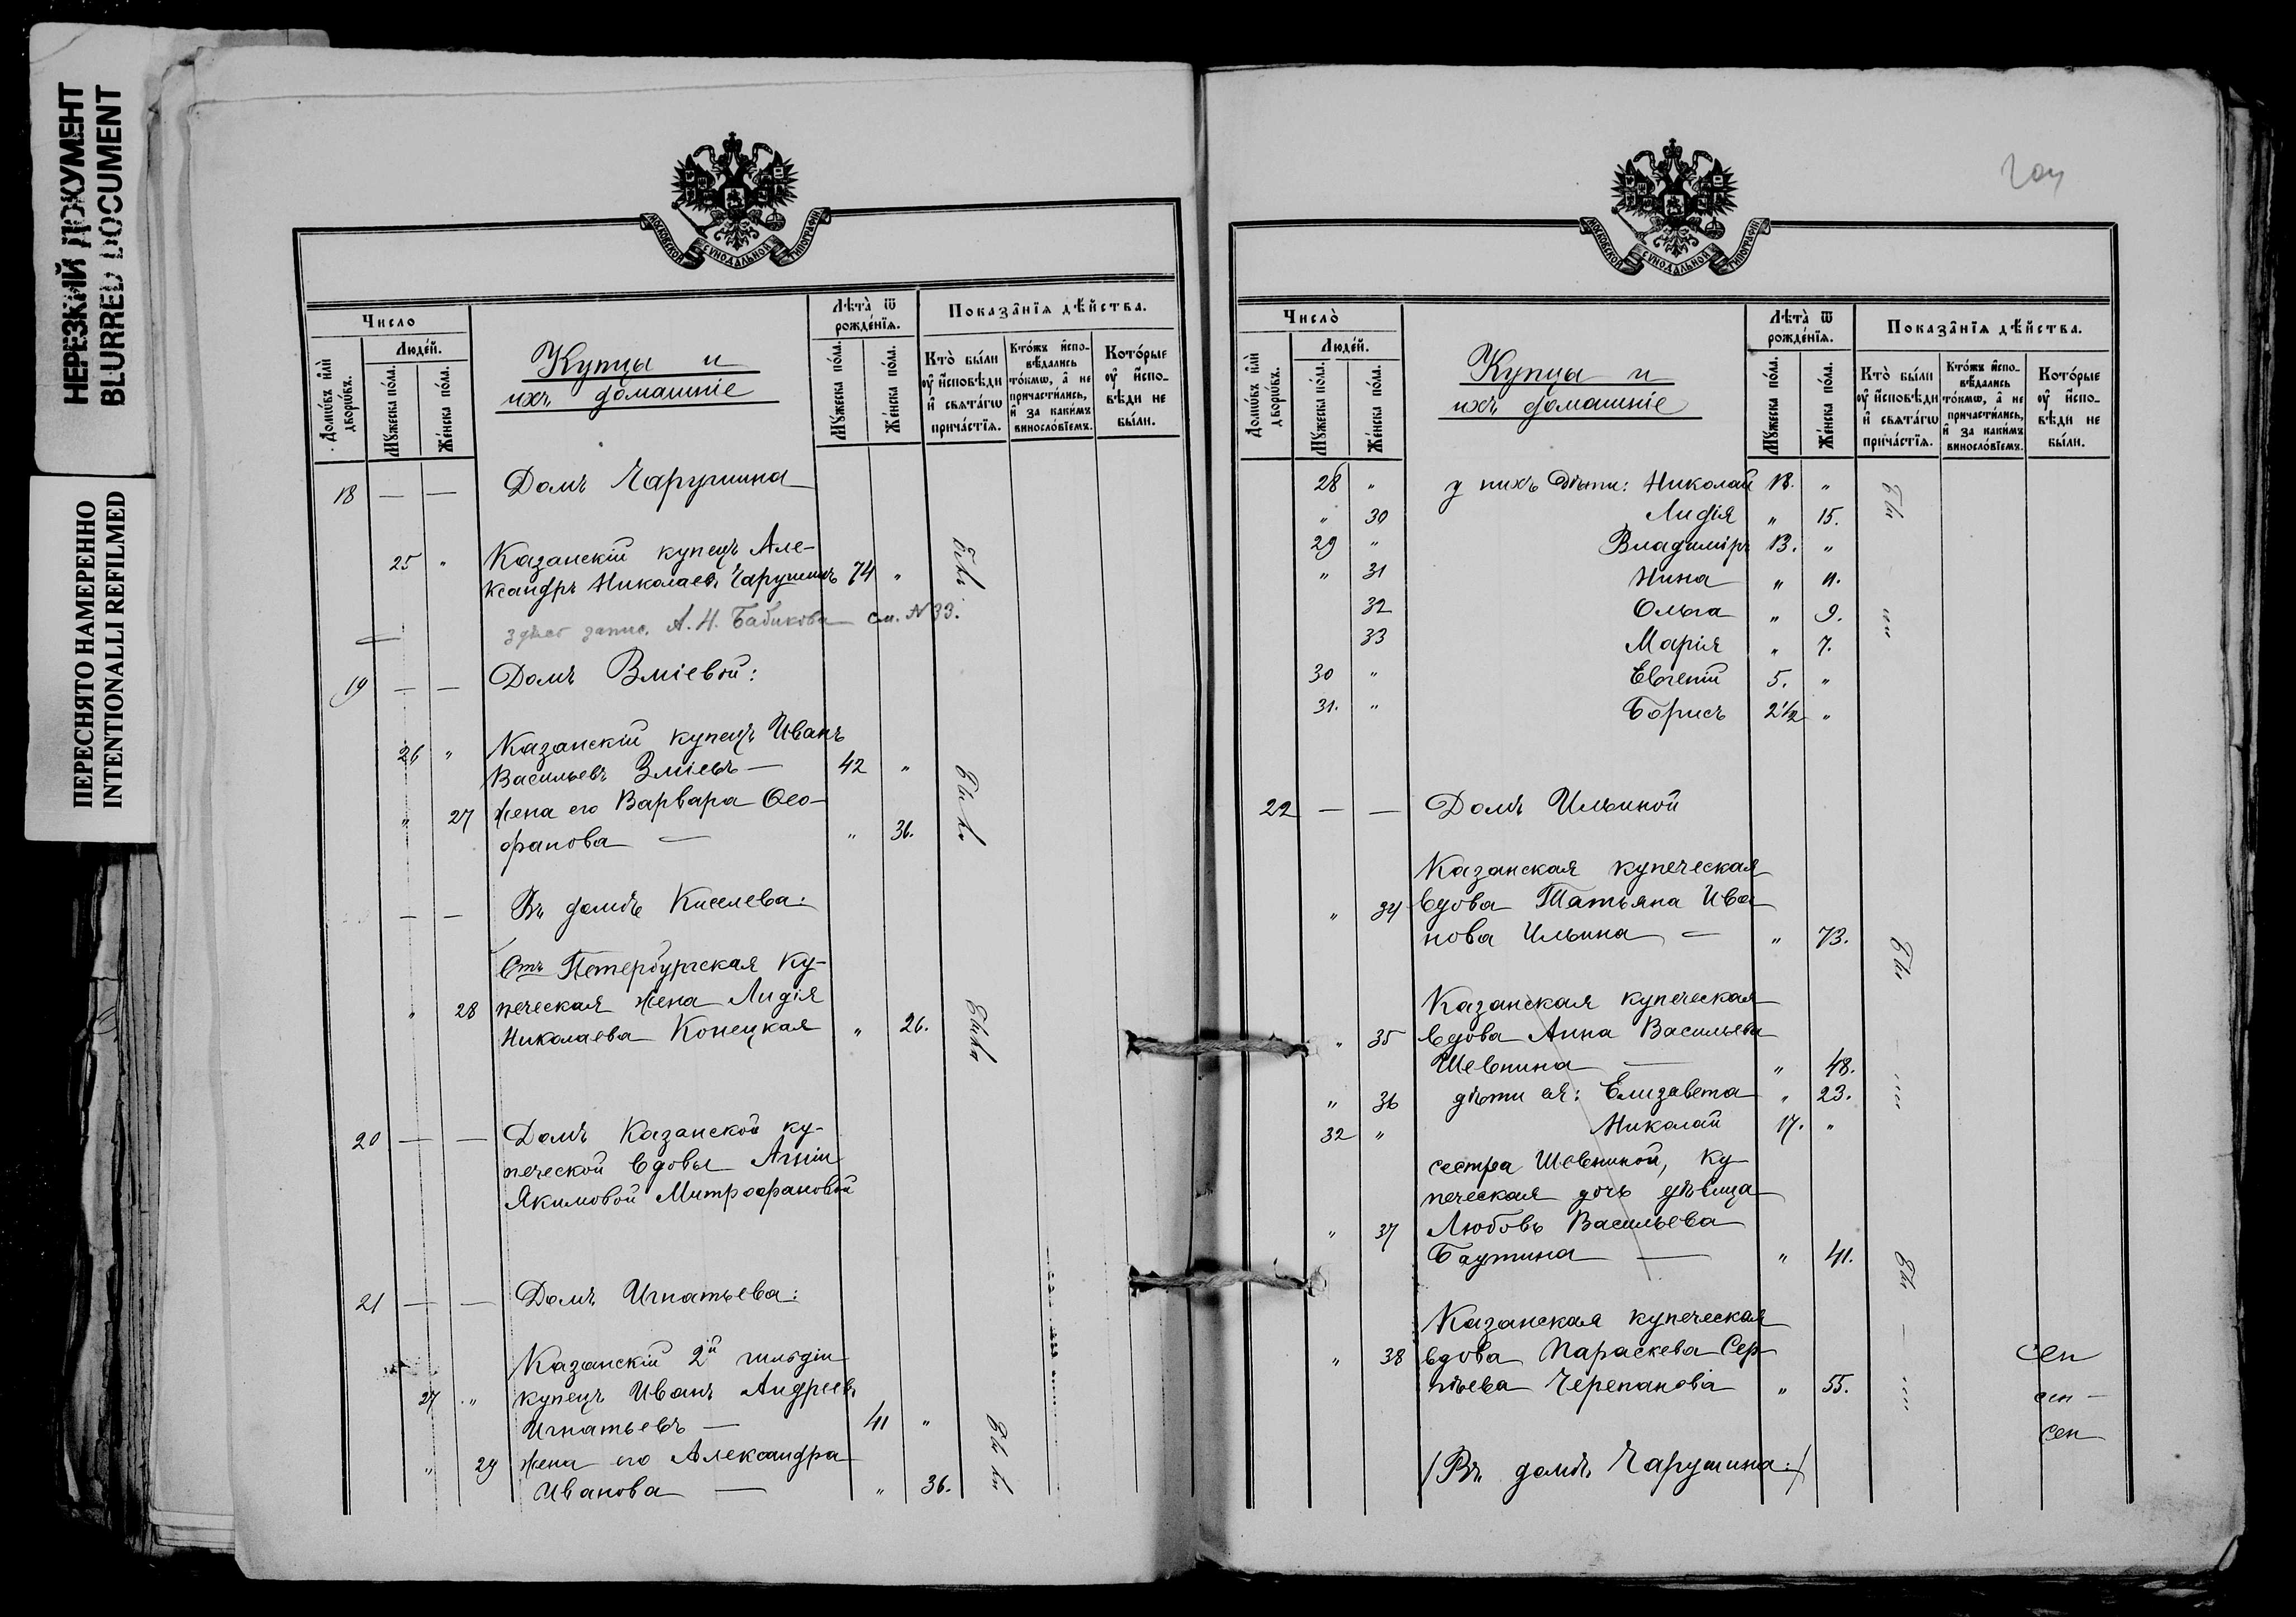 НЕРЕЗКИЙ ДОКУМЕНТ
BLURRED DOCUMENT
ПЕРЕСНЯТО НАМЕРЕННО
INTENTIONALLI REFILMED
МОСКОВСКОЙ СѴНОДАЛЬНОЙ ТИПОГРАФІИ
Число
Людей.
Домѡвъ или дворѡвъ.
Мꙋжеска пола.
Женска пола.
Купцы и
ихъ домашніе
Лѣта ѿ рожденїѧ.
Мꙋжеска пола.
Женска пола.
Показанїѧ дѣйства.
Кто были ѹ исповѣди и свѧтагѡ причастїѧ.
Ктожъ исповѣдались токмѡ, а не причастились, и за какимъ винословїемъ.
Которые ѹ исповѣди не были.
18 — — Домъ Чарушина
25 " Казанскій купецъ Але-
ксандръ Николаевъ Чарушинъ 74 "
здѣсь запис. А. Н. Бабикова см. N 33.
19 — — Домъ Зміевой:
26 " Казанскій купецъ Иванъ
Васильевъ Зміевъ — 42 "
" 27 жена его Варвара Ѳео-
фанова — " 36.
— — Въ домѣ Киселева:
Стъ Петербургская ку-
" 28 печеская жена Лидія
Николаева Конецкая " 26.
20 — — Домъ Казанской ку-
печеской вдовы Агніи
Якимовой Митрофановой
21 — — Домъ Игнатьева:
Казанскій 2й гильдіи
27 " купецъ Иванъ Андреевъ
Игнатьевъ — 41 "
" 29 жена его Александра
Иванова — " 36.
МОСКОВСКОЙ СѴНОДАЛЬНОЙ ТИПОГРАФІИ
Число
Людей.
Домѡвъ или дворѡвъ.
Мꙋжеска пола.
Женска пола.
Купцы и
ихъ домашніе
Лѣта ѿ рожденїѧ.
Мꙋжеска пола.
Женска пола.
Показанїѧ дѣйства.
Кто были ѹ исповѣди и свѧтагѡ причастїѧ.
Ктожъ исповѣдались токмѡ, а не причастились, и за какимъ винословїемъ.
Которые ѹ исповѣди не были.
28 " у нихъ дѣти: Николай 18. "
" 30 Лидія " 15.
29 " Владиміръ 13. "
" 31 Нина " 11.
32 Ольга " 9.
33 Марія " 7.
30 " Евгеній 5. "
31. " Борисъ 2½ "
22 — — Домъ Ильиной
Казанская купеческая
" 34 вдова Татьяна Ива
нова Ильина — " 73.
Казанская купеческая
" 35 вдова Анна Васильева
Шевнина — " 48.
" 36 дѣти ея: Елизавета " 23.
32 " Николай 17. "
сестра Шевниной, ку
печеская дочь дѣвица
" 37 Любовь Васильева
Баутина — " 41.
Казанская купеческая
" 38 вдова Параскева Сер
гѣева Черепанова " 55.
(Въ домѣ Чарушина:)